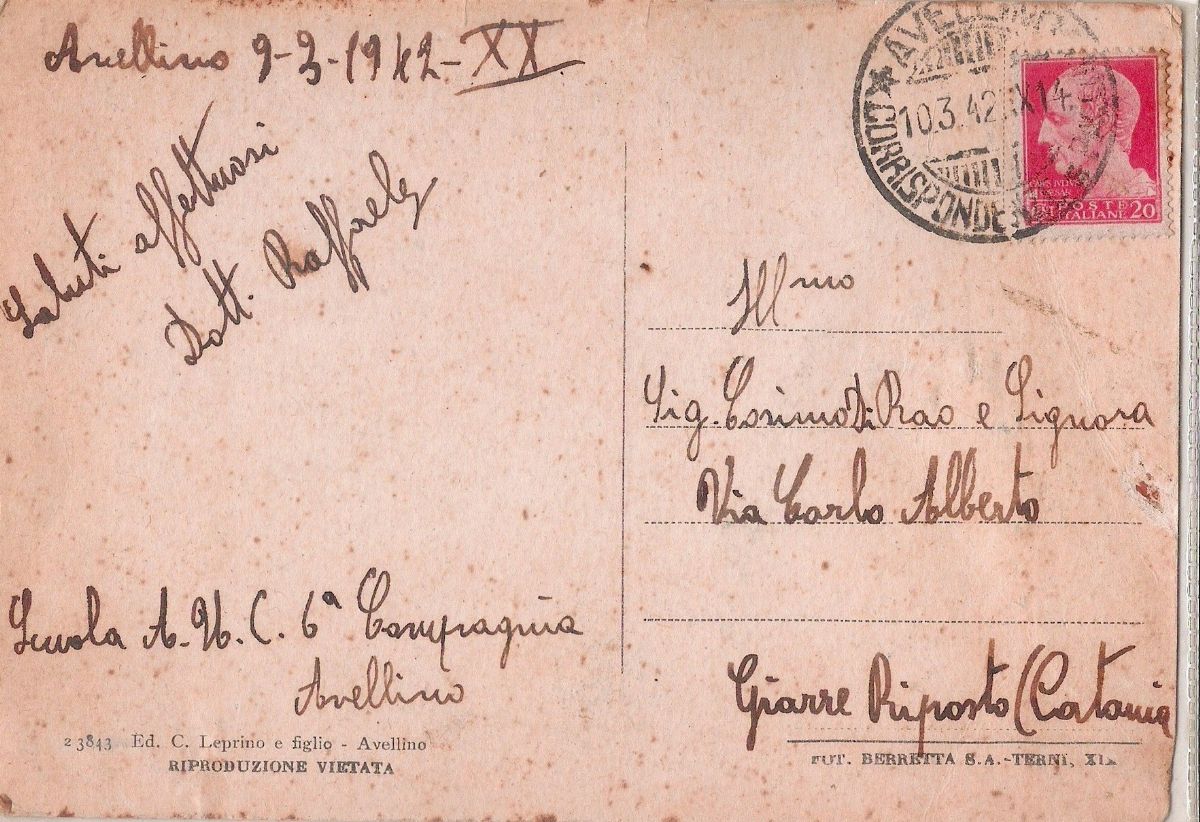 Avellino 9-3-1942-XX
Saluti affettuosi
Dott. Raffaele
Scuola A.U.C. 6ª Compagnia
Avellino
2 3843 Ed. C. Leprino e figlio - Avellino
RIPRODUZIONE VIETATA
AVELLINO
10.3.42 XX 14
CORRISPONDENZE
POSTE
ITALIANE 20
Ill mo
Sig. Cosimo Di Rao e Signora
Via Carlo Alberto
Giarre Riposto (Catania
FOT. BERRETTA S.A.-TERNI, XIX